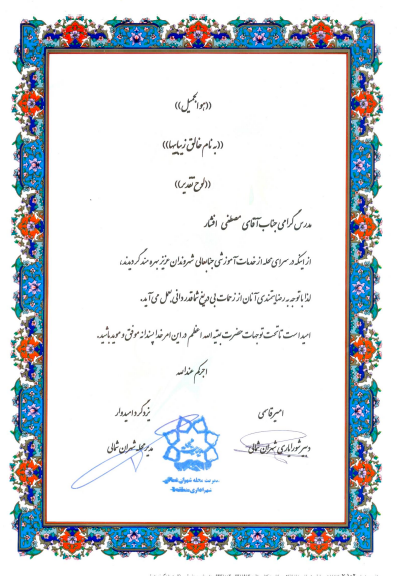 ((هوالجمیل))
((به نام خالق زیباییها))
((لوح تقدیر))
مدرس گرامی جناب آقای مصطفی افشار
از اینکه در سرای محله از خدمات آموزشی جنابعالی شهروندان عزیز بهره مند گردیدند،
لذا با توجه به رضایتمندی آنان از زحمات بی دریغ شما قدردانی بعمل می آید.
امید است تا تحت توجهات حضرت بقیه الله اعظم در این امر خدا پسندانه موفق و موید باشید.
اجرکم عندالله
امیر قاسمی
یزدگرد امیدوار
دبیر شورایاری شهران شمالی
مدیر محله شهران شمالی
مدیریت محله شهران شمالی
شهرداری منطقه ۵